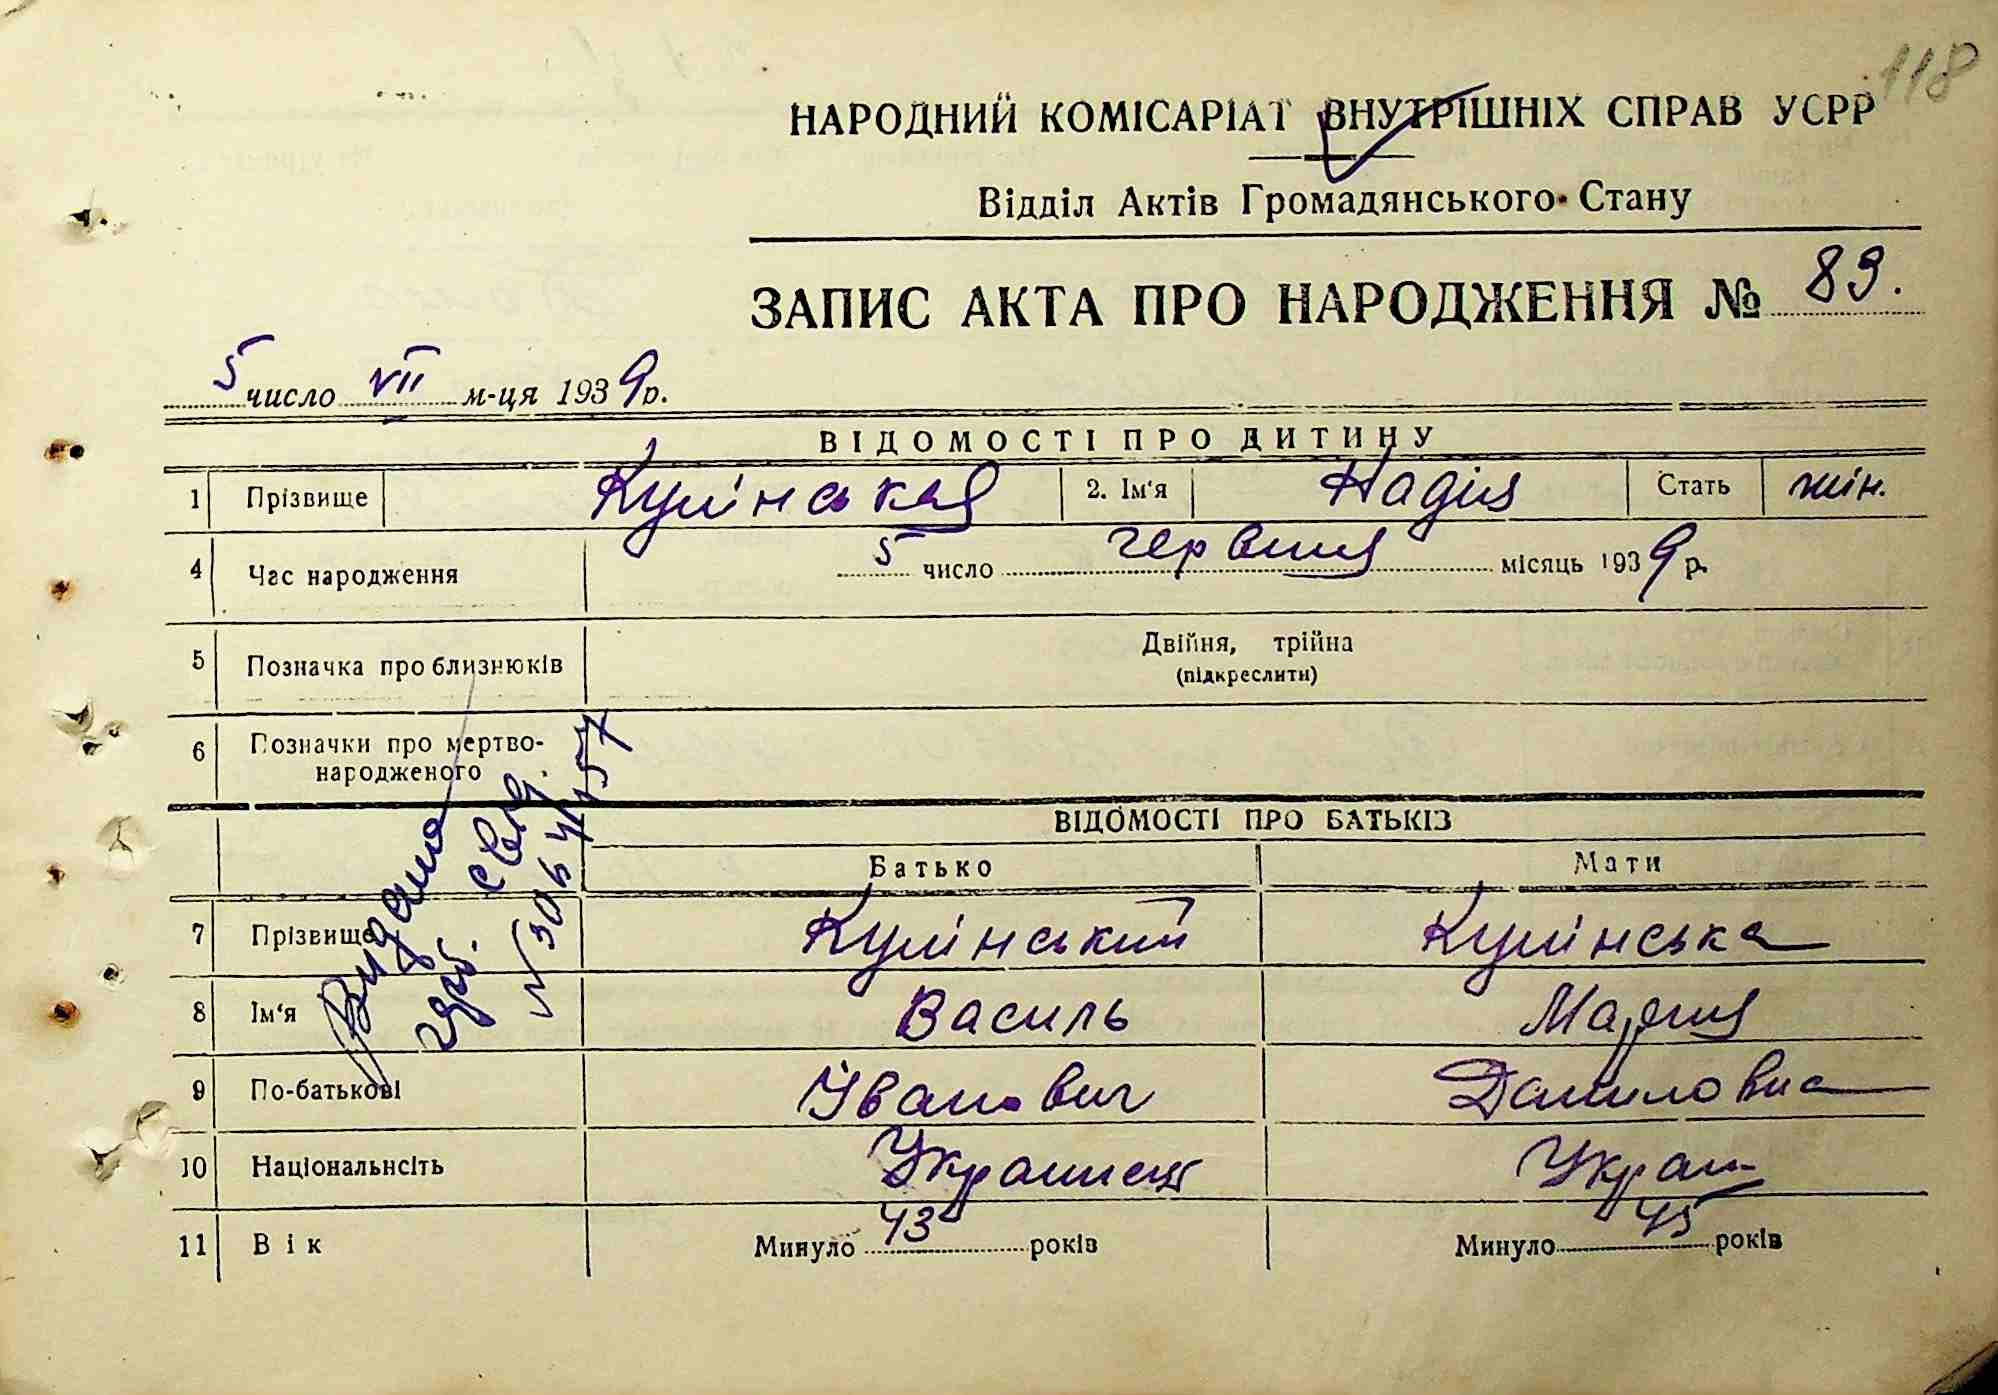 118
НАРОДНИЙ КОМІСАРІАТ ВНУТРІШНІХ СПРАВ УСРР
Відділ Актів Громадянського Стану
ЗАПИС АКТА ПРО НАРОДЖЕННЯ № 89.
5 число VII м-ця 1939 р.
ВІДОМОСТІ ПРО ДИТИНУ
1 Прізвище Кулінская 2. Ім'я Надія Стать жін.
4 Час народження 5 число червня місяць 1939 р.
5 Позначка про близнюків Двійня, трійна
(підкреслити)
6 Позначки про мертво-
народженого
ВІДОМОСТІ ПРО БАТЬКІЗ
Батько Мати
7 Прізвище Кулінський Кулінська
8 Ім'я Василь Мария
9 По-батькові Іванович Даниловна
10 Національнсіть Украинец Украи
11 Вік Минуло 43 років Минуло 45 років
Видана